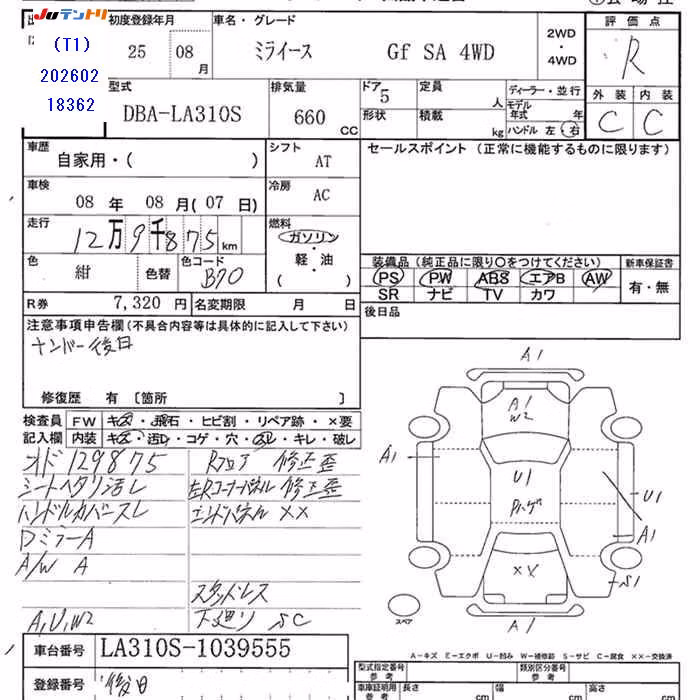 JUテントリ 初度登録年月 車名・グレード 評価点
(T1) 25 08月 ミライース Gf SA 4WD 2WD・4WD R
202602
18362
型式 DBA-LA310S 排気量 660 CC ドア 5 定員 人 ディーラー・並行 外装 内装
形状 積載 kg モデル年式 年 ハンドル 左・右 C C
車歴 自家用・( ) シフト AT セールスポイント(正常に機能するものに限ります)
車検 08年 08月(07日) 冷房 AC
走行 12万9千875km 燃料 ガソリン・軽・油( )
色 紺 色替 色コード B70
装備品(純正品に限り○をつけてください) 新車保証書
PS PW ABS エアB AW 有・無
SR ナビ TV カワ
R券 7,320円 名変期限 月 日 後日品
注意事項申告欄(不具合内容等は具体的に記入して下さい)
ナンバー後日
修復歴 有 〔箇所 〕
検査員 FW キズ・飛石・ヒビ割・リペア跡・×要
記入欄 内装 キズ・汚レ・コゲ・穴・スレ・キレ・破レ
オド129875 Rフロア 修正歪
シートヘタリ汚レ 左Rコーナーパネル 修正歪
ハンドルカバースレ エンドパネル ××
Dミラー A
A/W A
スタッドレス
A,U,W2 下廻り SC
A1
A1
W2
A1
U1
Rハゲ
U1
A1
××
S1
A1
スペア
A-キズ E-エクボ U-凹み W-補修跡 S-サビ C-腐食 ××-交換済
車台番号 LA310S-1039555
登録番号 後日
型式指定番号 参考 類別区分番号 参考
車庫証明用 参考 長さ cm 幅 cm 高さ cm